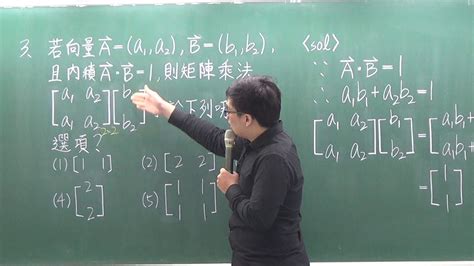 3. 若向量A=(a₁,a₂),B=(b₁,b₂),
且內積A·B=1,則矩陣乘法
[a₁ a₂
a₁ a₂][b
b₂] 於下列哪
2×2
選項?
(1) [1 1] (2) [2 2]
(4) [2
2] (5) [1 1
1 1]
<sol>
∵ A·B=1
∴ a₁b₁+a₂b
[a₁ a₂
a₁ a₂][b₁
b₂]=[a₁b₁+
a₁b₁+
=[1
1]